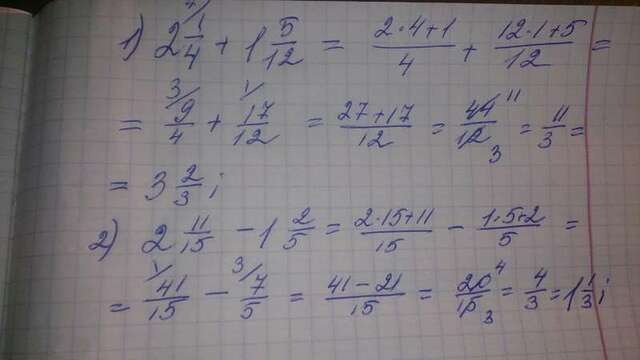 1) 2 1/4 + 1 5/12 = (2·4+1)/4 + (12·1+5)/12 =
= 3/ 9/4 + 1/ 17/12 = (27+17)/12 = 44/12 11 3 = 11/3 =
= 3 2/3 ;
2) 2 11/15 - 1 2/5 = (2·15+11)/15 - (1·5+2)/5 =
= 1/ 41/15 - 3/ 7/5 = (41-21)/15 = 20/15 4 3 = 4/3 = 1 1/3 ;